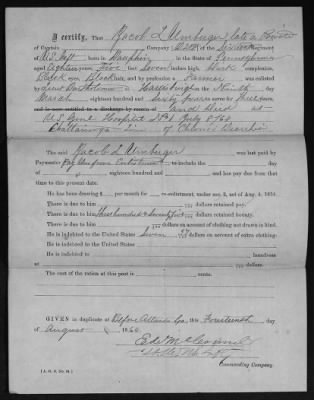 I certify, That Jacob L Umbuger late a Private
of Captain Company of the Sixteenth
of US Inft born in Dauphin in the State of Pennsylvania
aged Eighteen Five feet Seven inches high, Dark complexion,
Black eyes, Black hair, and by profession a Farmer was enlisted
by Lieut Bartholomew at Harrisburgh on the Ninth day of
March eighteen hundred and sixty four to serve for three
and is now entitled to a discharge by reason of
US Genl Hospital No 1 July 8 /64
Chattanooga Tenn of Chronic Diarrhea
The said Jacob L Umbuger was last paid by
Paymaster to include the day
of , eighteen hundred and , and has pay due from that
time to the present date.
He has been drawing $ per month for re-enlistment, under sec. 2, act of Aug. 4, 1854.
There is due to him dollars retained pay.
There is due to him Three hundred & Seventy five dollars retained bounty.
There is due to him dollars on account of clothing not drawn in kind.
He is indebted to the United States Seven dollars on account of extra clothing.
He is indebted to the United States
He is indebted to laundress
at dollars.
The cost of the ration at this post is cents.
GIVEN in duplicate at Before Atlanta Ga, this Fourteenth day
of August 1864
Commanding Company.